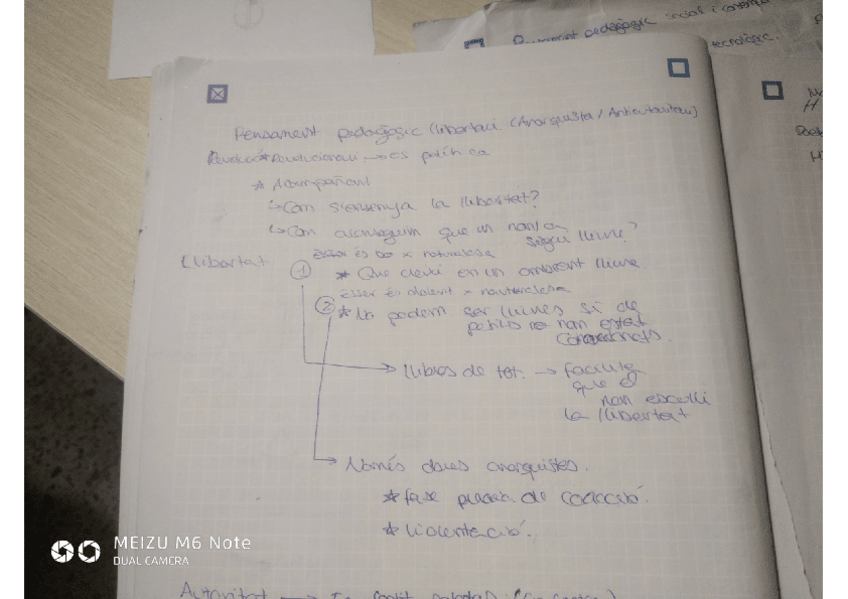 pedagògic social i
tecnològic.
Pensament pedagògic llibertari (Anarquista / Antiautoritari)
Revolucionari → és política
* Acompanyant
↳ Com s'ensenya la llibertat?
↳ Com aconseguim que un nen/a
sigui lliure?
Llibertat
ésser és bo x naturalesa
① * Que creixi en un ambient lliure
ésser és dolent x naturalesa
② * No podem ser lliures si de
petits no han estat
→ Llibres de tot. → Facilita
que el
nen esculli
la llibertat
→ Només claus anarquistes.
* fase prèvia de coacció.
* Violentació.
Autoritat →
MEIZU M6 Note
DUAL CAMERA